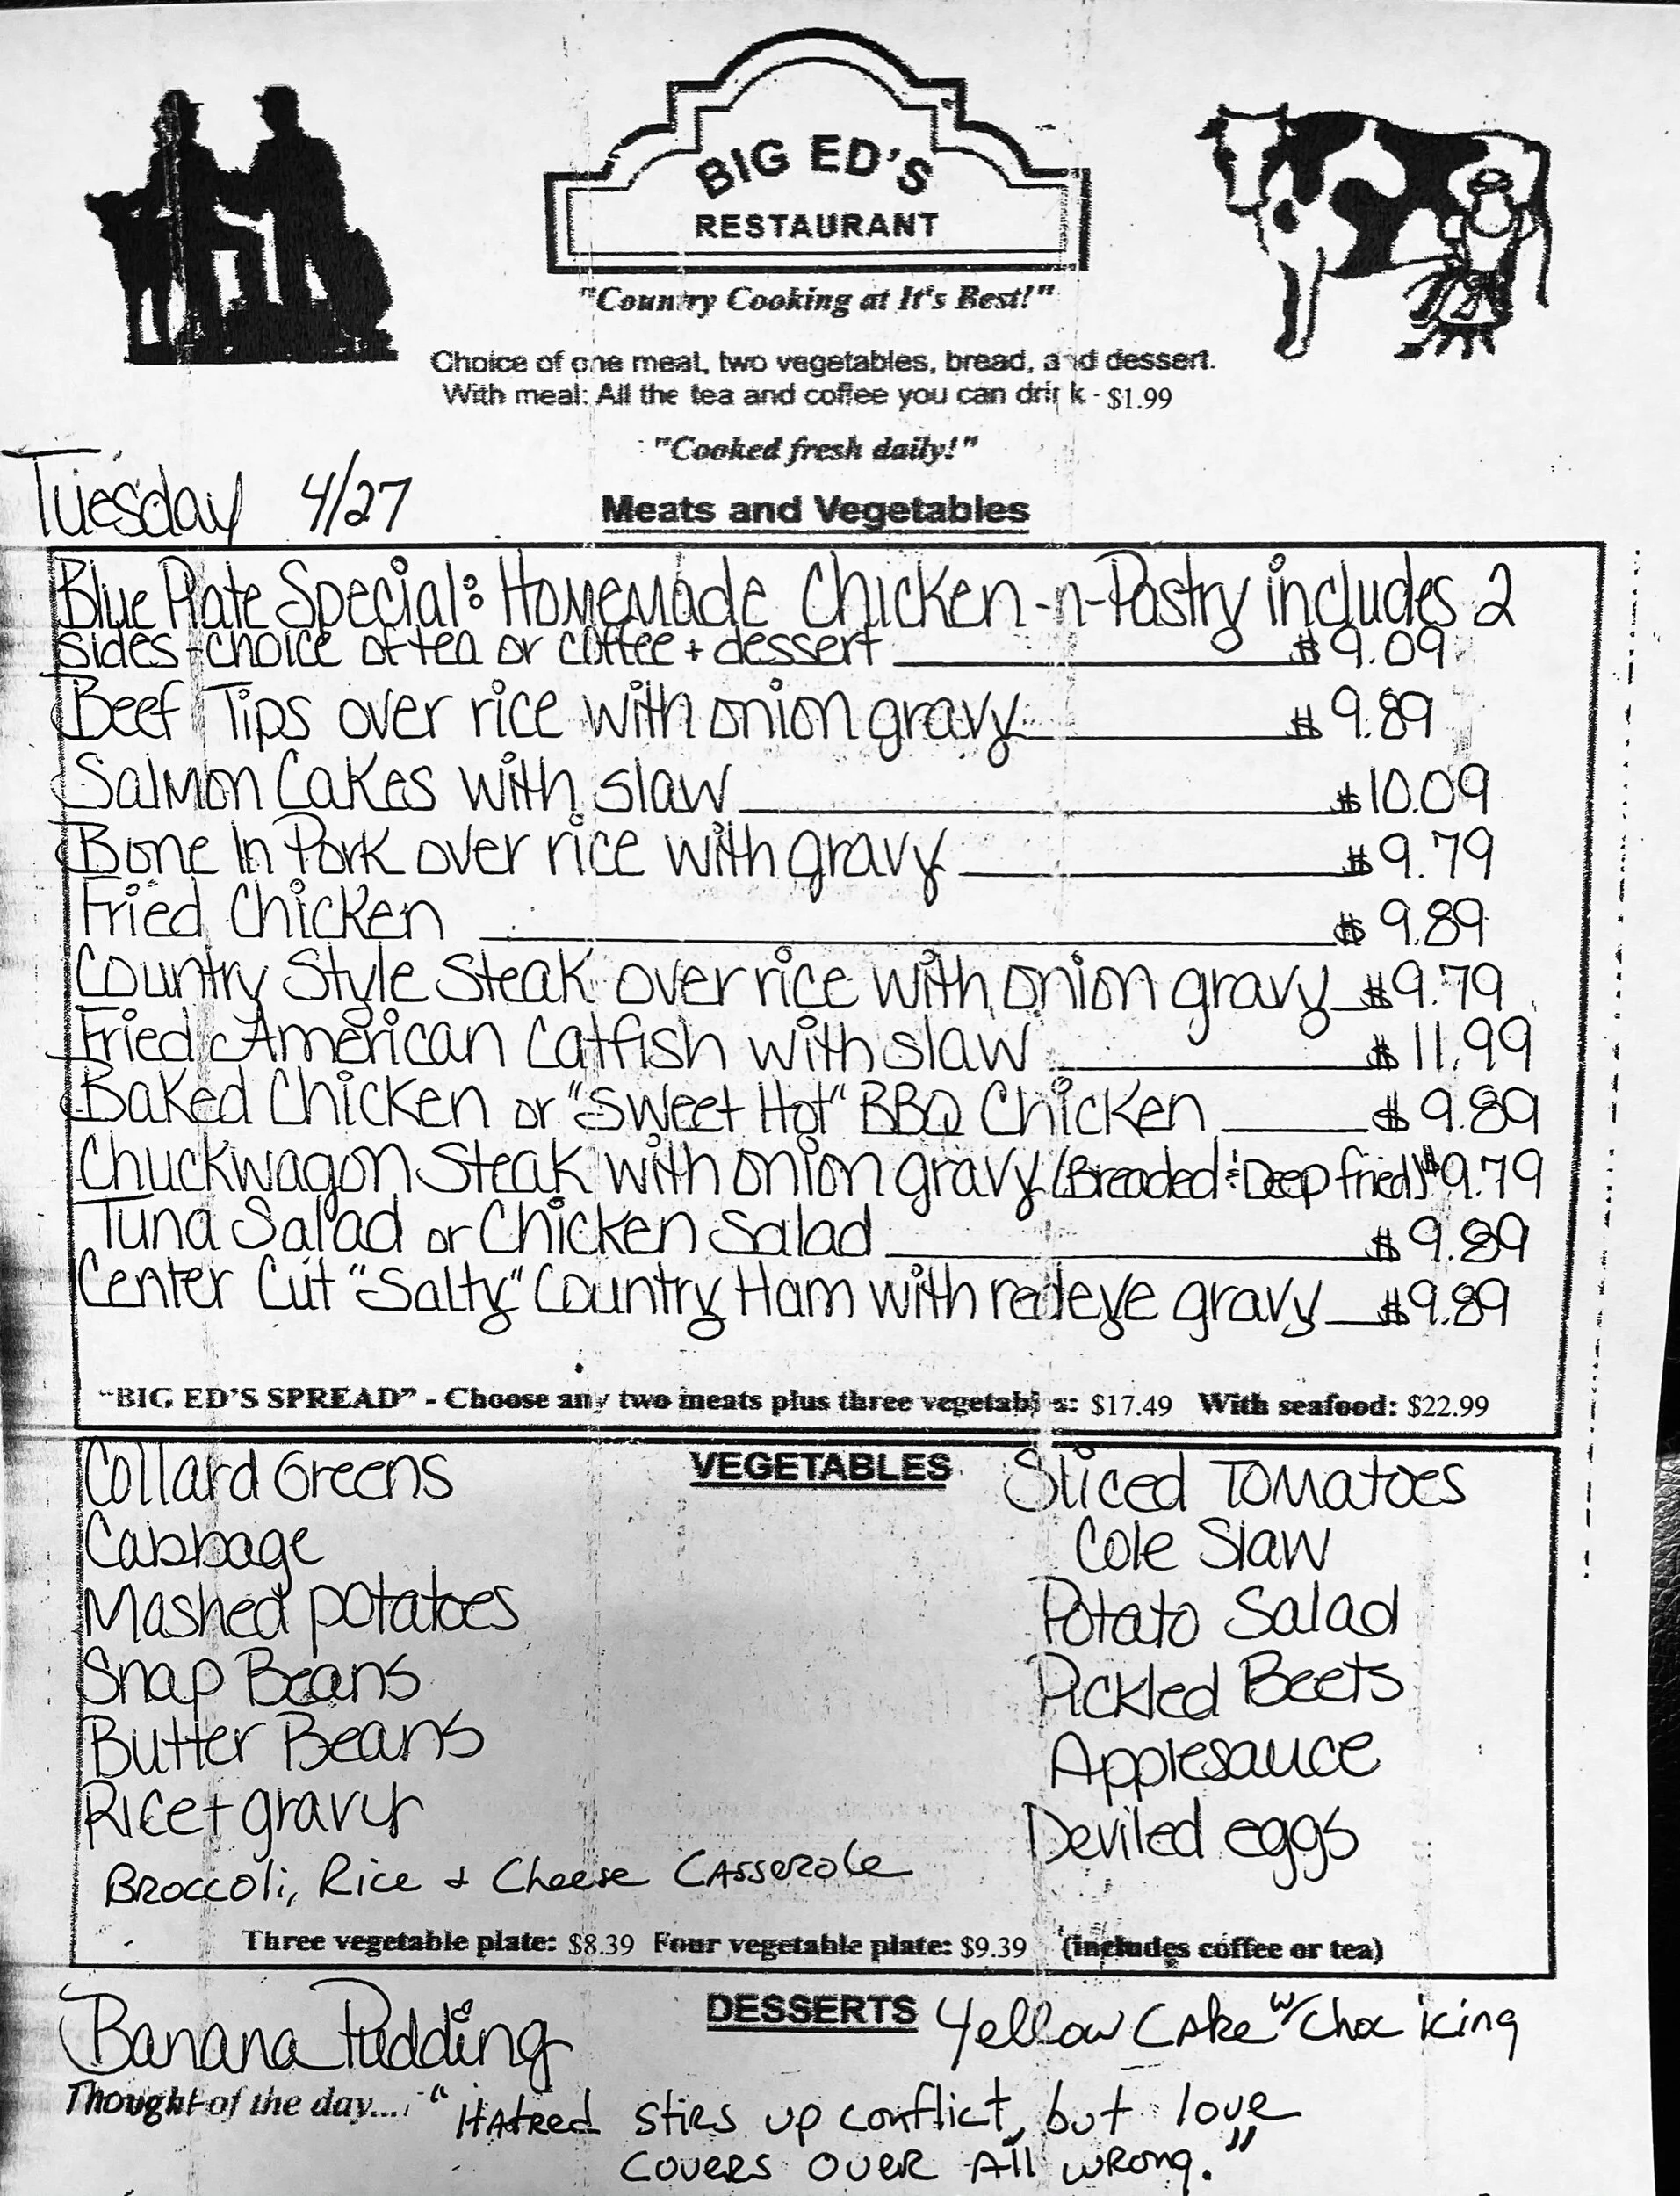 BIG ED'S
RESTAURANT
"Country Cooking at It's Best!"
Choice of one meat, two vegetables, bread, and dessert.
With meal: All the tea and coffee you can drink - $1.99
"Cooked fresh daily!"
Tuesday 4/27
Meats and Vegetables
Blue Plate Special: Homemade Chicken-n-Pastry includes 2
sides + choice of tea or coffee + dessert $9.09
Beef Tips over rice with onion gravy $9.89
Salmon Cakes with slaw $10.09
Bone In Pork over rice with gravy $9.79
Fried Chicken $9.89
Country Style Steak over rice with onion gravy $9.79
Fried American Catfish with slaw $11.99
Baked Chicken or "Sweet Hot" BBQ Chicken $9.89
Chuckwagon Steak with onion gravy (Breaded & Deep fried) $9.79
Tuna Salad or Chicken Salad $9.89
Center Cut "Salty" Country Ham with redeye gravy $9.89
"BIG ED'S SPREAD" - Choose any two meats plus three vegetables: $17.49 With seafood: $22.99
VEGETABLES
Collard Greens
Cabbage
Mashed potatoes
Snap Beans
Butter Beans
Rice + gravy
Broccoli, Rice & Cheese Casserole
Sliced Tomatoes
Cole Slaw
Potato Salad
Pickled Beets
Applesauce
Deviled eggs
Three vegetable plate: $8.39 Four vegetable plate: $9.39 (includes coffee or tea)
DESSERTS
Banana Pudding
Yellow Cake w/ Choc icing
Thought of the day... "Hatred stirs up conflict, but love
covers over all wrong."